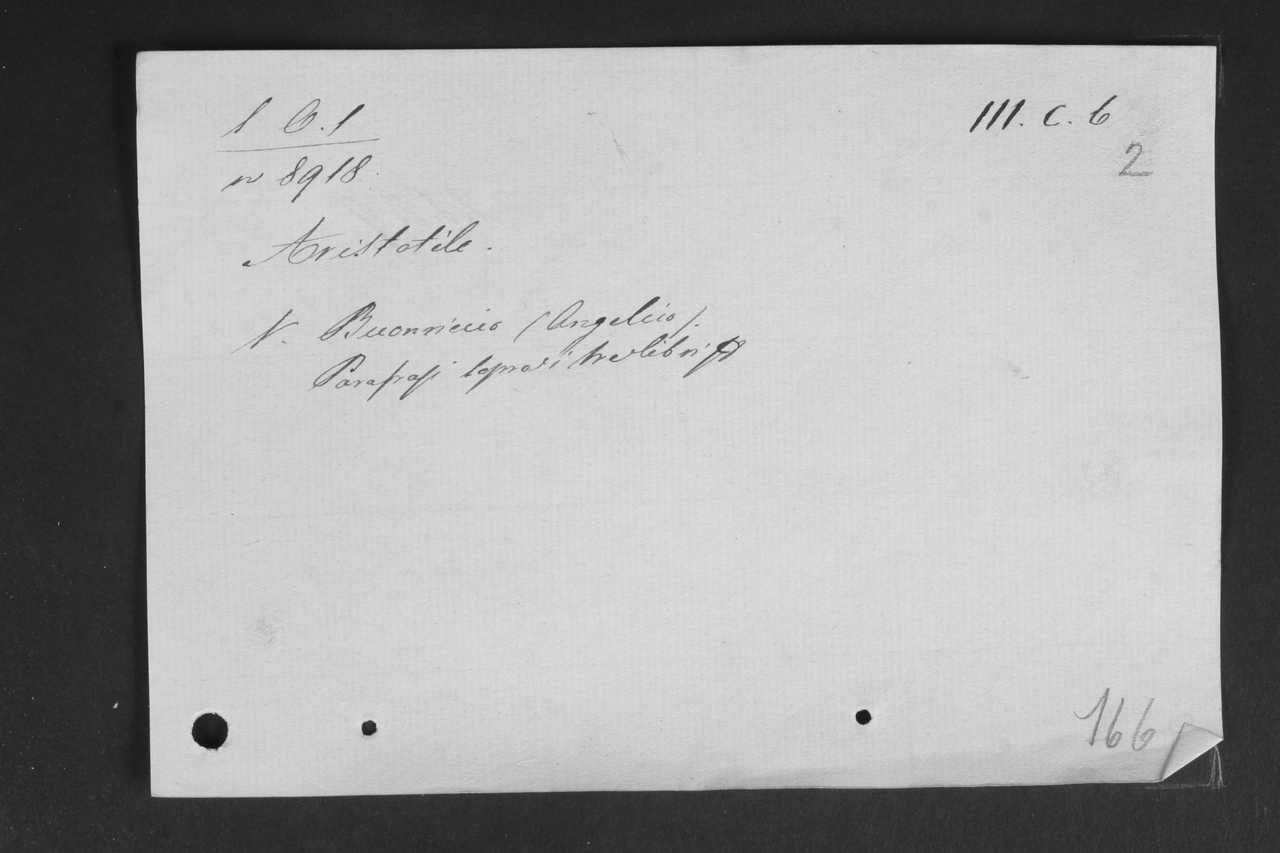 1 6.1
III. C. 6
2
n 8918.
Aristotile.
V. Buonriccio (Angelico).
Parafrasi sopra i tre libri
166